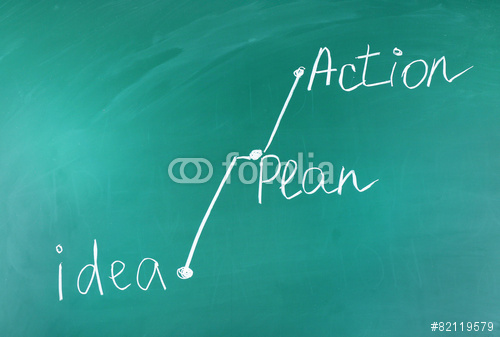 Action
Plan
idea
fotolia
#82119579